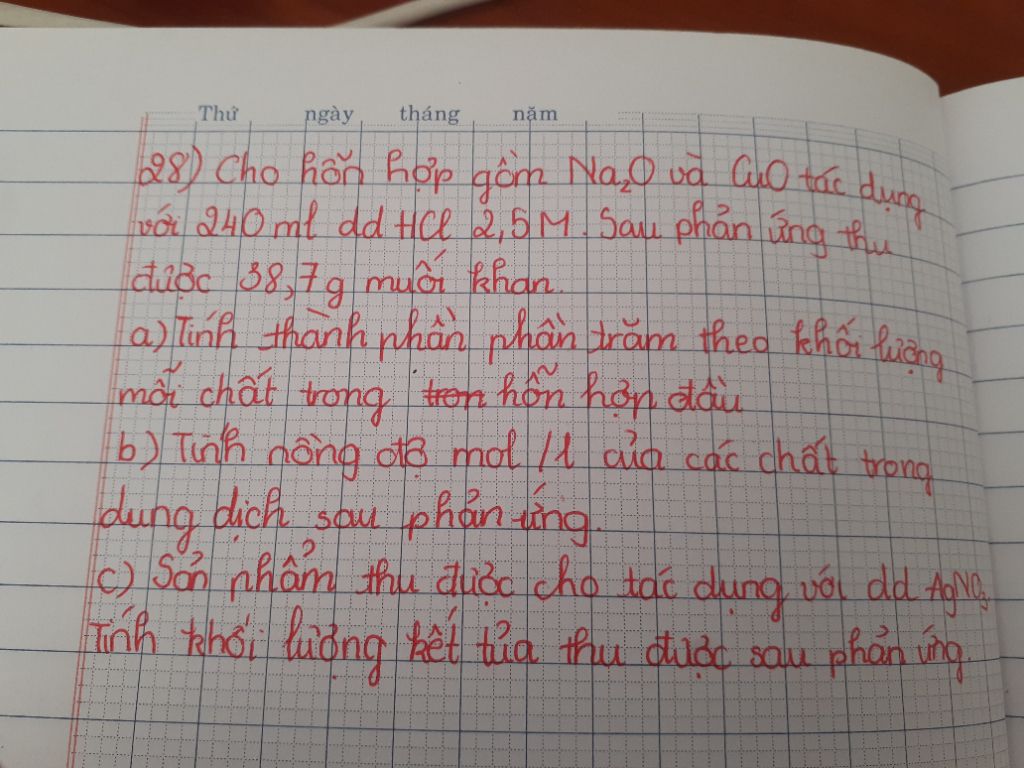 Thứ ngày tháng năm
28) Cho hỗn hợp gồm Na₂O và CuO tác dụng
với 240 ml dd HCl 2,5M. Sau phản ứng thu
được 38,7g muối khan.
a) Tính thành phần phần trăm theo khối lượng
mỗi chất trong tron hỗn hợp đầu
b) Tính nồng độ mol /l của các chất trong
dung dịch sau phản ứng.
c) Sản phẩm thu được cho tác dụng với dd AgNO₃.
Tính khối lượng kết tủa thu được sau phản ứng.